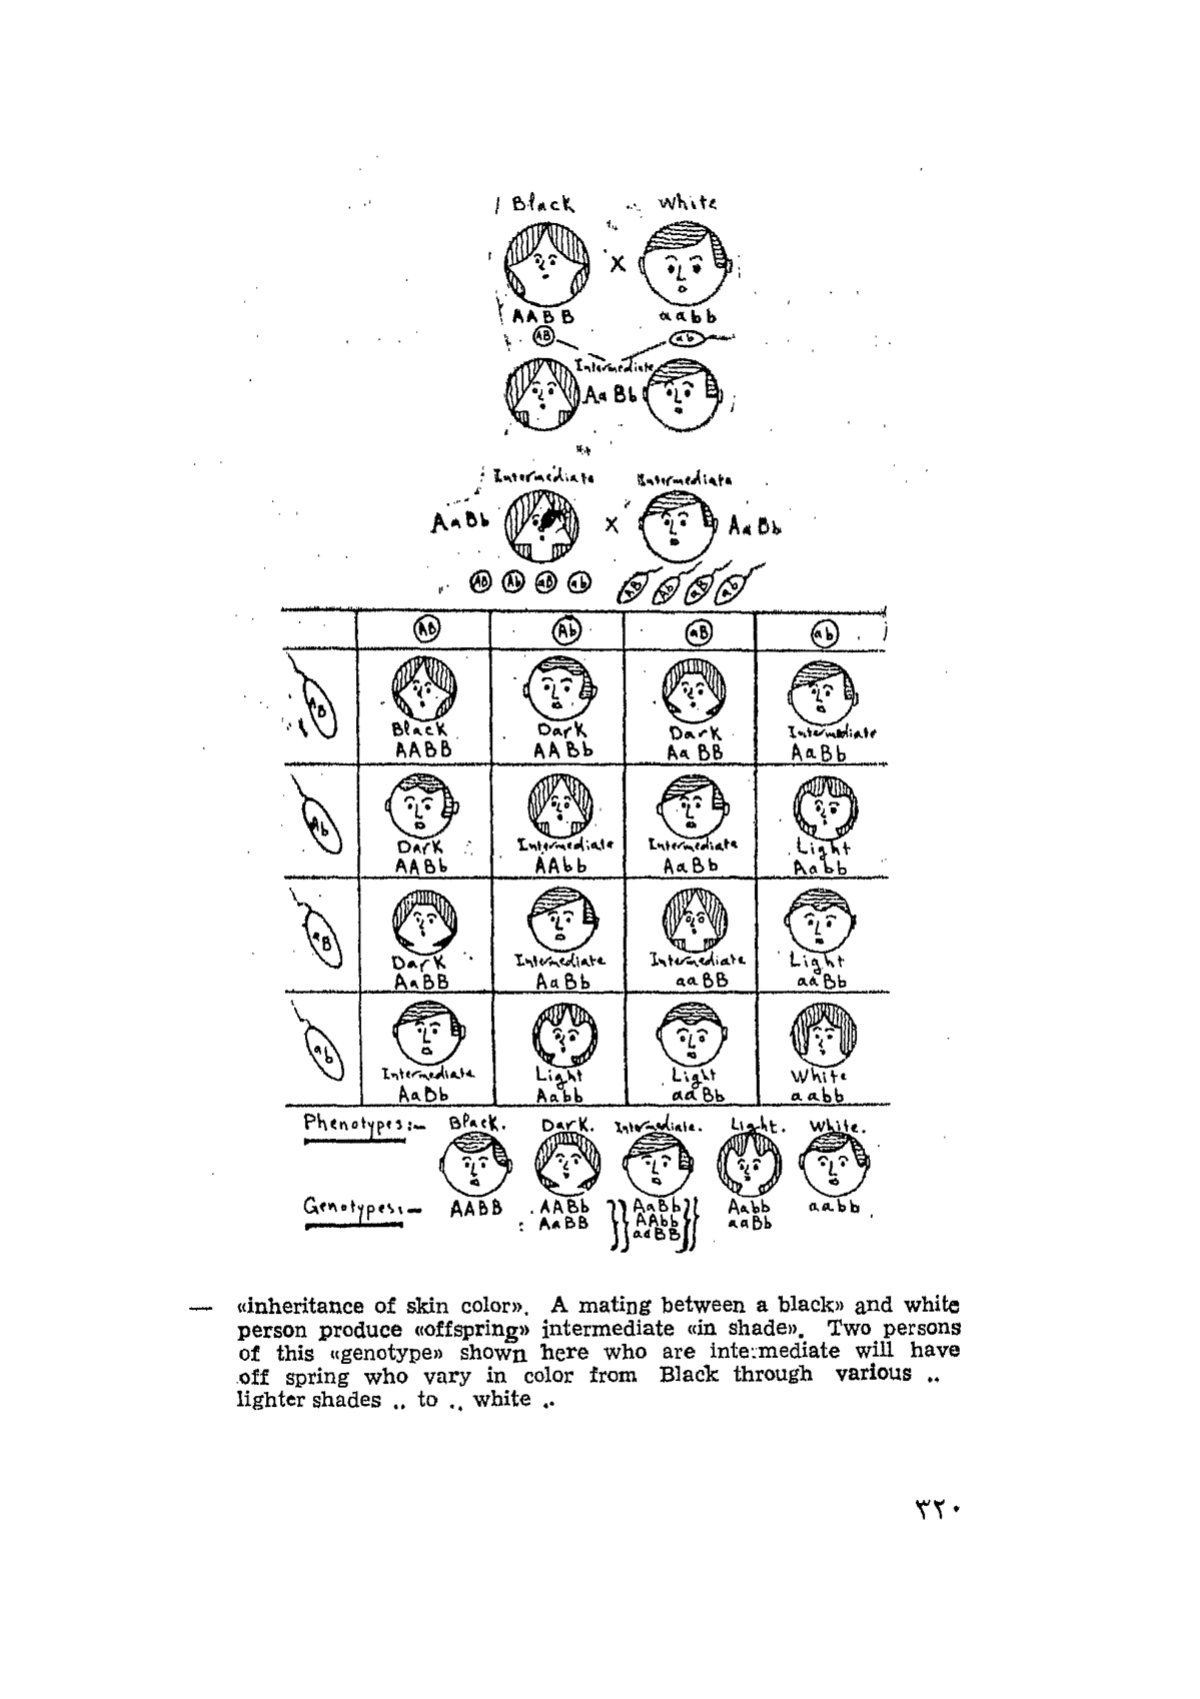 Black White
X
AABB aabb
AB ab
Intermediate
AaBb
Intermediate Intermediate
AaBb X AaBb
AB Ab aB ab AB Ab aB ab
AB Ab aB ab
AB
Black Dark Dark Intermediate
AABB AABb AaBB AaBb
Ab
Dark Intermediate Intermediate Light
AABb AAbb AaBb Aabb
aB
Dark Intermediate Intermediate Light
AaBB AaBb aaBB aaBb
ab
Intermediate Light Light White
AaBb Aabb aaBb aabb
Phenotypes:- Black. Dark. Intermediate. Light. White.
Genotypes:- AABB AABb AaBb Aabb aabb
AaBB AAbb aaBb
aaBB
— «inheritance of skin color». A mating between a black» and white
person produce «offspring» intermediate «in shade». Two persons
of this «genotype» shown here who are intermediate will have
off spring who vary in color from Black through various ..
lighter shades .. to .. white ..
٣٢٠